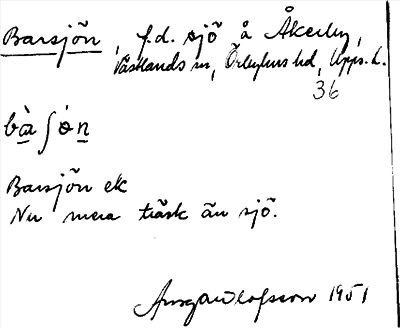 Barsjön, f.d. sjö å Åkerby,
Västlands sn, Örbyhus hd, Upps. l.
36
bà ʃ ó n
Barsjön ek
Nu mera träsk än sjö.
Olofsson 1951